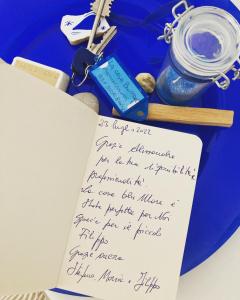 23 luglio 2022
Grazie Alessandra
per la tua disponibilità e
professionalità.
La casa blu Mare è
stata perfetta per Noi
anche per il piccolo
Filippo
Grazie ancora
Stefano Maria e Filippo